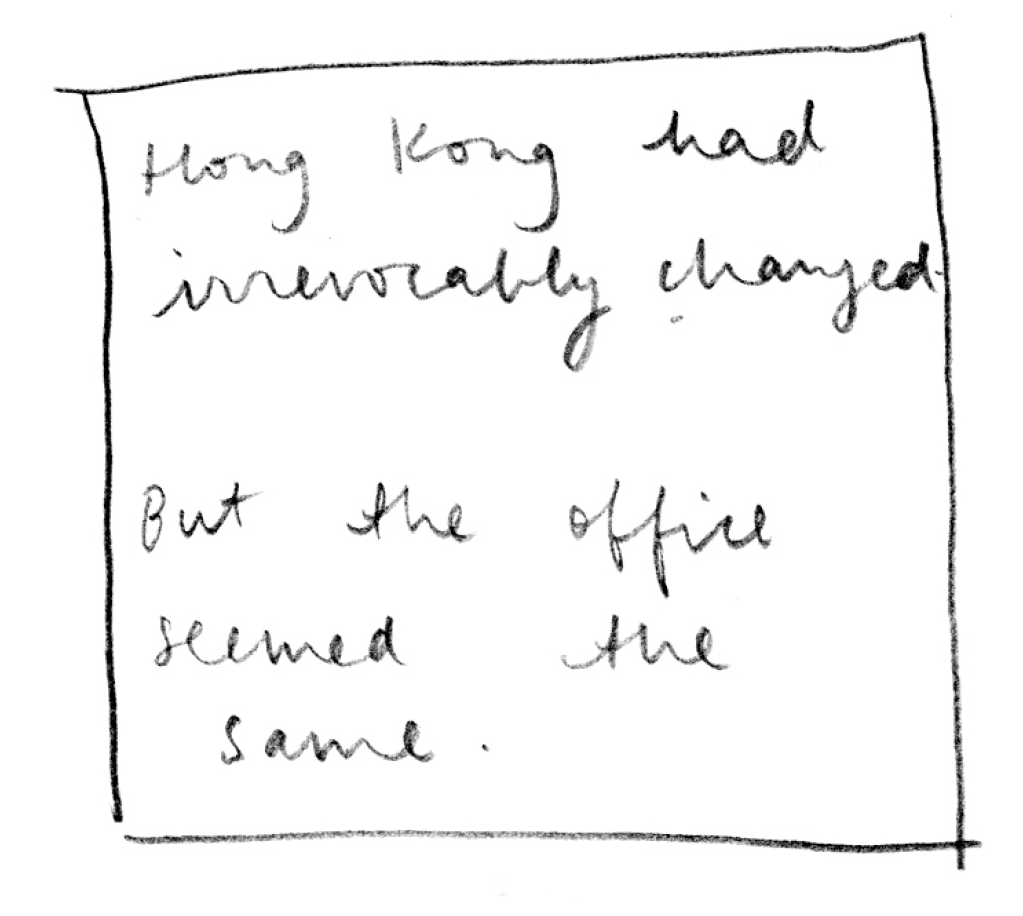 Hong Kong had
irrevocably changed.
But the office
seemed the
same.